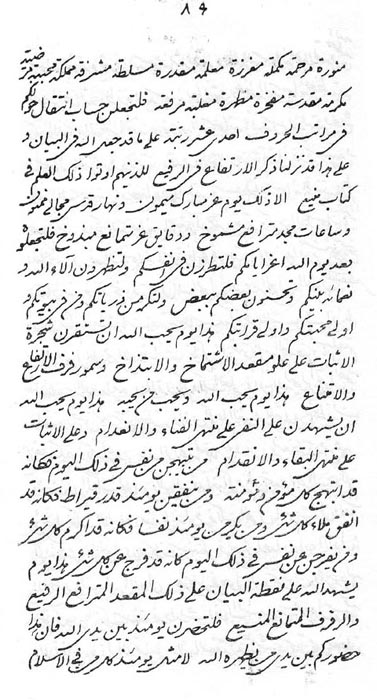 ٨٩
منورة مرحمة مكملة مغرزة معلمة مقدرة مسلطة مشرفة مملكة محببة مرضية
مكرمة مقدسة مفخرة مظهرة مغلبة مرفقة فلتجعلن حساب انتقال حوالكم
فى مراتب الحروف احدى عشر رتبة على ما قد حصى الله فى البيان و
على هذا قد نزلنا ذكر الارتفاع فى الرفيع للذينهم اوتوا ذلك العلم فى
كتاب منيع الا ذلك يوم عز مبارك ميمون ونهار قدس مجالى
وساعات مجد مترافع مشموخ ودقايق عز متمانع مبذوخ فلتجعلن
بعد يوم الله اعز اياكم فلتطرزن فى انفسكم ولتظهرون آلاء الله و
نعمائه بينكم وتحسنون بعضكم ببعض ولتكرمن ذرياتكم وذى قربيتكم و
اولى محبتكم واولى قرابتكم هذا يوم يحب الله ان تستقرن شجرة
الاثبات على علو مقعد الاشتماخ والابتذاخ وسمو رفرف الارتفاع
والاقتناع هذا يوم يحب الله ويحب من يحبه هذا يوم يحب الله
ان يشهدن على النفى على منتهى الفناء والانعدام وعلى الاثبات
على منتهى البقاء والانقدام من يبتهجن من نفس فى ذلك اليوم فكانه
قد ابتهج كل مؤمن ومؤمنة ومن ينفقن يومئذ قدر قيراط فكانه قد
انفق ملاء كل شىء ومن يكرمن يومئذ نفسا فكانه قد اكرم كل شىء
ومن يفرجن عن نفس فى ذلك اليوم كانه قد فرج عن كل شىء هذا يوم
يشهد الله على نقطة البيان على ذلك المقعد المترافع الرفيع
والرفرف المتمانع المنيع فلتحضرن يومئذ بين يدى الله فان هذا
حضوركم بين يدى من يظهره الله لا مثل يومئذ كل من فى الاسلام